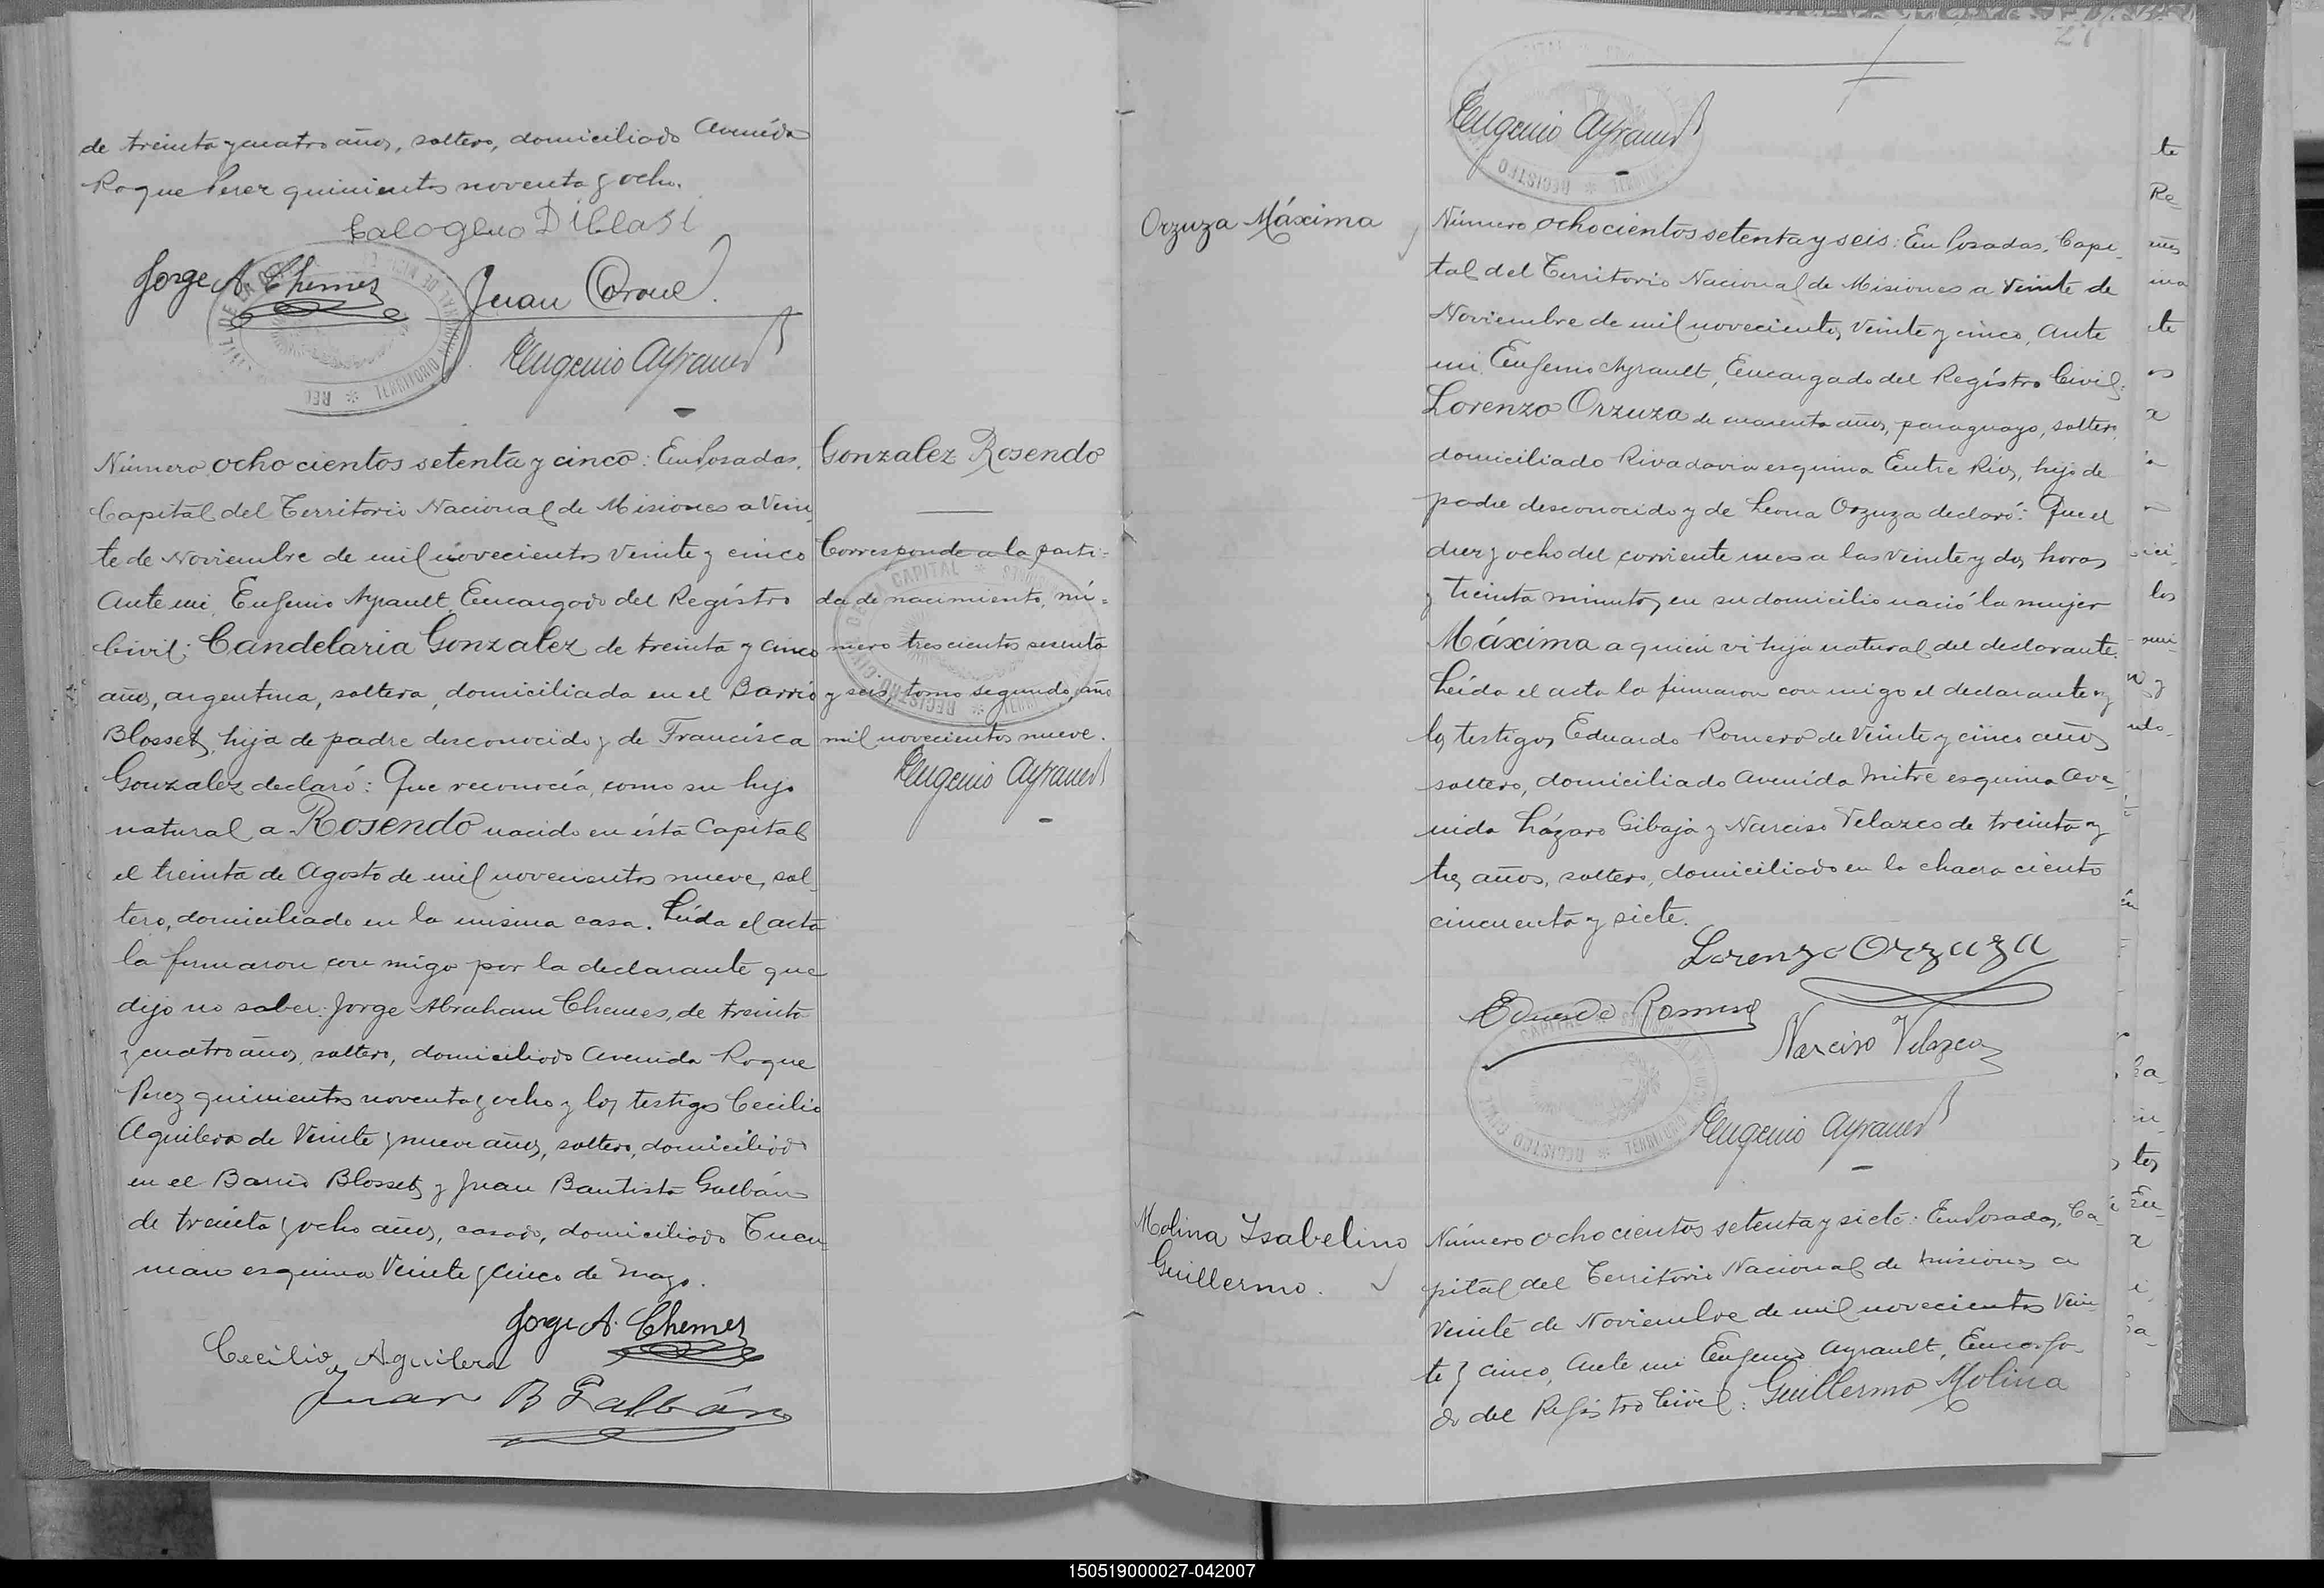 de treinta y cuatro años, soltero, domiciliado Avenida
Roque Perez quinientos noventa y ocho.
Calogero DiBlasi
Jorge A. Chemes
Juan
Eugenio Ayrault
Número ochocientos setenta y cinco: En Posadas,
Capital del Territorio Nacional de Misiones a Vein
te de Noviembre de mil novecientos veinte y cinco
Ante mi, Eugenio Ayrault, Encargado del Registro
Civil: Candelaria Gonzalez de treinta y cinco
años, argentina, soltera, domiciliada en el Barrio
Blosset, hija de padre desconocido y de Francisca
Gonzalez declaró: Que reconocía, como su hijo
natural a Rosendo nacido en ésta Capital
el treinta de Agosto de mil novecientos nueve, sol-
tero, domiciliado en la misma casa. Leída el acta
la firmaron con migo por la declarante que
dijo no saber: Jorge Abraham Chemes, de treinta
y cuatro años, soltero, domiciliado Avenida Roque
Perez quinientos noventa y ocho y los testigos Cecilio
Aguilera de Veinte y nueve años, soltero, domiciliado
en el Barrio Blosset y Juan Bautista Galbán
de treinta y ocho años, casado, domiciliado Tucu-
man esquina Veinte y Cinco de Mayo.
Jorge A. Chemes
Cecilio Aguilera
Juan B Galbán
Gonzalez Rosendo
Corresponde a la parti-
da de nacimiento, nú-
mero trescientos sesenta
y seis, tomo segundo, año
mil novecientos nueve.
Eugenio Ayrault
REGISTRO CIVIL DE LA CAPITAL
27
Eugenio Ayrault
Orzuza Máxima
Número ochocientos setenta y seis: En Posadas, Capi-
tal del Territorio Nacional de Misiones a Veinte de
Noviembre de mil novecientos veinte y cinco, Ante
mi, Eugenio Ayrault, Encargado del Registro Civil:
Lorenzo Orzuza de cuarenta años, paraguayo, soltero,
domiciliado Rivadavia esquina Entre Ríos, hijo de
padre desconocido y de Leona Orzuza declaró: Que el
diez y ocho del corriente mes a las veinte y dos horas
y treinta minutos, en su domicilio nació la mujer
Máxima a quien vi hija natural del declarante.
Leída el acta la firmaron con migo el declarante y
los testigos Eduardo Romero de Veinte y cinco años
soltero, domiciliado Avenida Mitre esquina Ave-
nida Lázaro Gibaja y Narciso Velazco de treinta y
tres años, soltero, domiciliado en la chacra ciento
cincuenta y siete.
Lorenzo Orzuza
Eduardo Romero
Narciso Velazco
Eugenio Ayrault
Molina Isabelino
Guillermo.
Número ochocientos setenta y siete: En Posadas, Ca-
pital del Territorio Nacional de Misiones a
Veinte de Noviembre de mil novecientos Vein
te y cinco, Ante mi Eugenio Ayrault, Encarga-
do del Registro Civil: Guillermo Molina
150519000027-042007